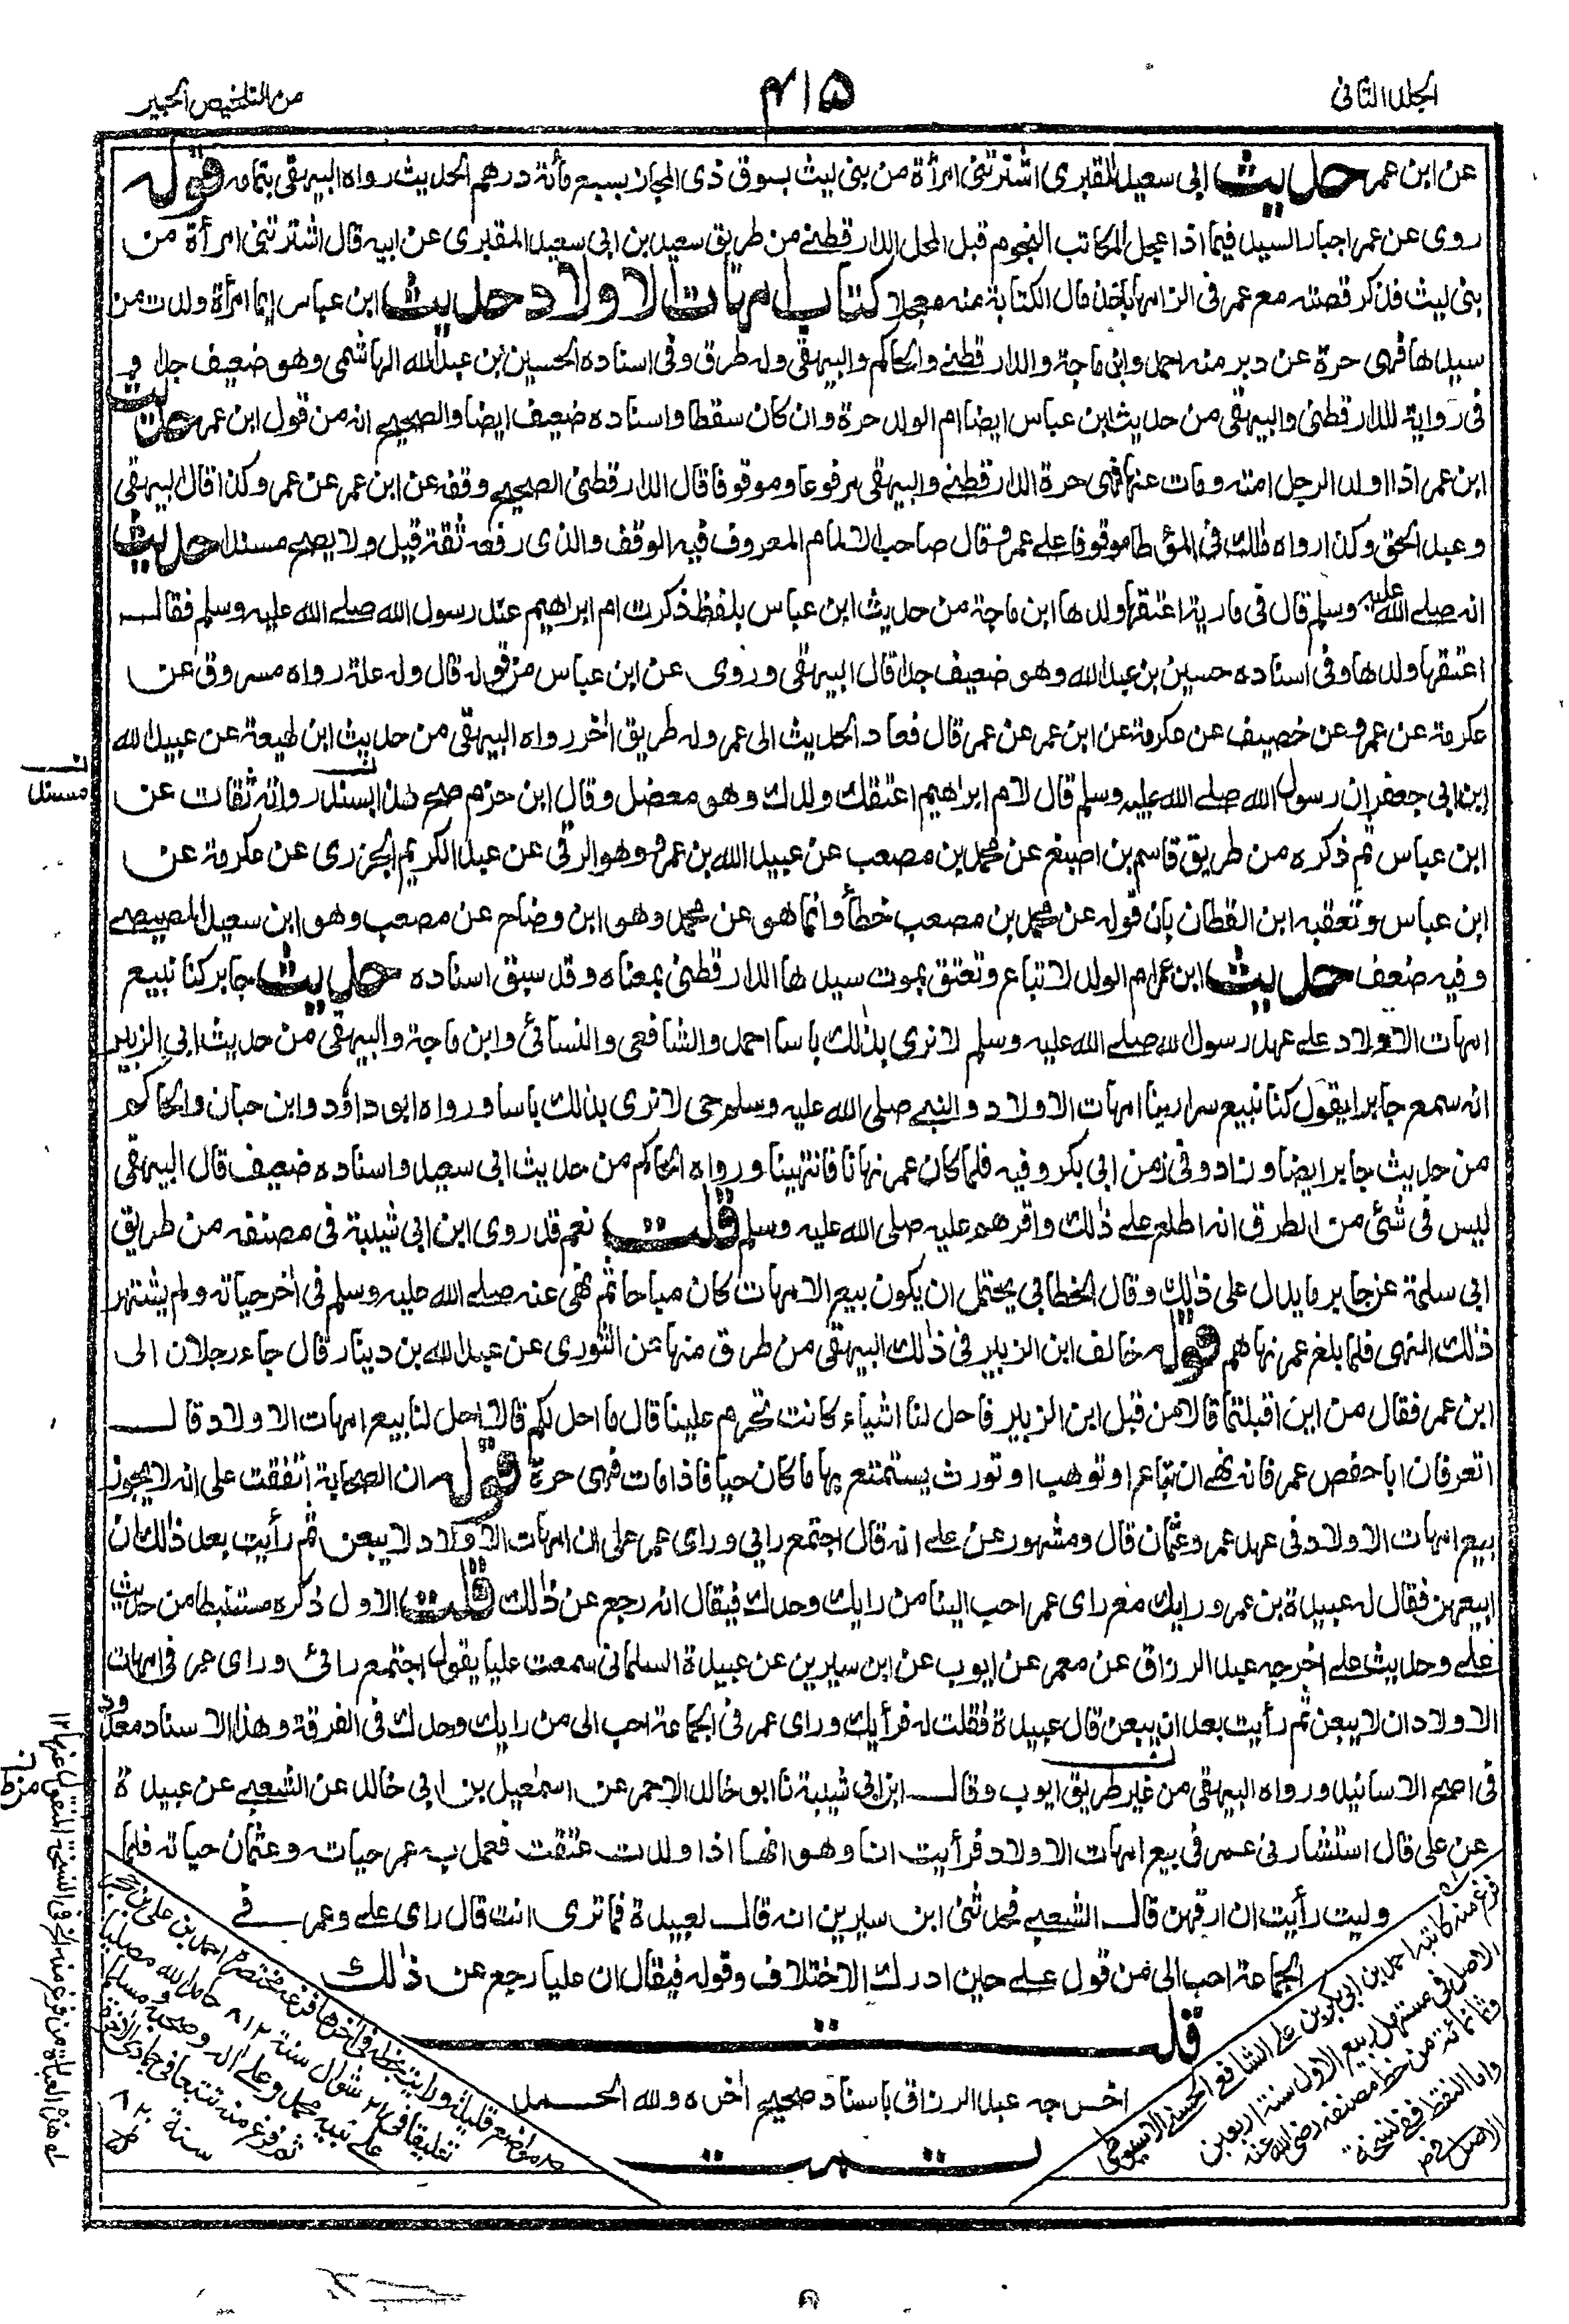 الجلد الثانى
۴۱۵
من التلخيص الحبير
عن ابن عمر حديث ابى سعيد المقبرى اشترتنى امرأة من بنى ليث بسوق ذى المجاز بسبع مأئة درهم الحديث رواه البيهقى بتمامه قوله
روى عن عمر اجبار السيد فيما اذا عجل المكاتب النجوم قبل المحل الدارقطنے من طريق سعيد بن ابى سعيد المقبرى عن ابيه قال اشترتنى امرأة من
بنى ليث فذكر قصته مع عمر فى الزامها باخذ مال الكتابة منه معجلا كتاب امهات الاولاد حديث ابن عباس ايما امرأة ولدت من
سيدها فهى حرة عن دبر منه احمد وابن ماجة والدارقطنے والحاكم والبيهقى وله طرق وفى اسناده الحسين بن عبد الله الهاشمى وهو ضعيف جدا و
فى رواية للدارقطنى والبيهقى من حديث ابن عباس ايضا ام الولد حرة وان كان سقطا واسناده ضعيف ايضا والصحيح انه من قول ابن عمر حديث
ابن عمر اذا اولد الرجل امته ومات عنها فهى حرة الدارقطنے والبيهقى مرفوعا وموقوفا قال الدارقطنى الصحيح وقفه عن ابن عمر عن عمر وكذا قال البيهقى
وعبد الحق وكذا رواه مالك فى المؤطا موقوفا على عمر وقال صاحب الالمام المعروف فيه الوقف والذى رفعه ثقة قيل ولا يصح مسندا حديث
انه صلے الله عليه وسلم قال فى مارية اعتقها ولدها ابن ماجة من حديث ابن عباس بلفظ ذكرت ام ابراهيم عند رسول الله صلے الله عليه وسلم فقال
اعتقها ولدها وفى اسناده حسين بن عبد الله وهو ضعيف جدا قال البيهقى وروى عن ابن عباس من قوله قال وله علة رواه مسروق عن
عكرمة عن عمر وعن خصيف عن عكرمة عن ابن عمر عن عمر قال فعاد الحديث الى عمر وله طريق أخر رواه البيهقى من حديث ابن لهيعة عن عبيد الله
ابن ابى جعفر ان رسول الله صلے الله عليه وسلم قال لام ابراهيم اعتقك ولدك وهو معضل وقال ابن حزم صح هذا بسند رواته ثقات عن
ابن عباس ثم ذكره من طريق قاسم بن اصبغ عن محمد بن مصعب عن عبيد الله بن عمر وهو الرقى عن عبد الكريم الجزرى عن عكرمة عن
ابن عباس وتعقبه ابن القطان بان قوله عن محمد بن مصعب خطأ وانما هو عن محمد وهو ابن وضاح عن مصعب وهو ابن سعيد المصيصے
وفيه ضعف حديث ابن عمر ام الولد لا تباع وتعتق بموت سيدها الدارقطنى بمعناه وقد سبق اسناده حديث جابر كنا نبيع
امهات الاولاد على عهد رسول الله صلے الله عليه وسلم لا نرى بذلك باسا احمد والشافعى والنسائى وابن ماجة والبيهقى من حديث ابى الزبير
انه سمع جابرا يقول كنا نبيع سرارينا امهات الاولاد والنبے صلى الله عليه وسلم حى لا نرى بذلك باسا ورواه ابو داؤد وابن حبان والحاكم
من حديث جابر ايضا وزاد وفى زمن ابى بكر وفيه فلما كان عمر نهانا فانتهينا ورواه الحاكم من حديث ابى سعيد واسناده ضعيف قال البيهقى
ليس فى شئ من الطرق انه اطلع على ذلك واقرهم عليه صلى الله عليه وسلم قلت نعم قد روى ابن ابى شيبة فى مصنفه من طريق
ابى سلمة عن جابر ما يدل على ذلك وقال الخطابى يحتمل ان يكون بيع الامهات كان مباحا ثم نهى عنه صلے الله عليه وسلم فى أخر حياته ولم يشتهر
ذلك النهى فلما بلغ عمر نهاهم قوله خالف ابن الزبير فى ذلك البيهقى من طرق منها عن الثورى عن عبد الله بن دينار قال جاء رجلان الى
ابن عمر فقال من اين اقبلتما قالا من قبل ابن الزبير فاحل لنا اشياء كانت تحرم علينا قال ما احل لكم قالا احل لنا بيع امهات الاولاد قال
اتعرفان ابا حفص عمر فانه نهے ان تباع او توهب او تورث يستمتع بها ما كان حيا فاذا مات فهى حرة قوله ان الصحابة اتفقت على انه لا يجوز
بيع امهات الاولاد فى عهد عمر وعثمان قال ومشهور عن على انه قال اجتمع رايى وراى عمر على ان امهات الاولاد لا يبعن ثم رأيت بعد ذلك ان
ابيعهن فقال له عبيدة بن عمر ورايك مع راى عمر احب الينا من رايك وحدك فيقال انه رجع عن ذلك قلت الاول ذكره مستنبطا من حديث
على وحديث على اخرجه عبد الرزاق عن معمر عن ايوب عن ابن سيرين عن عبيدة السلمانى سمعت عليا يقول اجتمع رائى وراى عمر فى امهات
الاولاد ان لا يبعن ثم رأيت بعد ان يبعن قال عبيدة فقلت له فرأيك وراى عمر فى الجماعة احب الى من رايك وحدك فى الفرقة وهذا الاسناد معدود
فى اصح الاسانيد ورواه البيهقى من غير طريق ايوب وقال ابن ابى شيبة نا ابو خالد الاحمر عن اسمعيل بن ابى خالد عن الشعبى عن عبيدة
عن على قال استشارنى عمر فى بيع امهات الاولاد فرأيت انا وهو انها اذا ولدت عتقت فعمل به عمر حياته وعثمان حياته فلما
وليت رأيت ان ارقهن قال الشعبے فحدثنى ابن سيرين انه قال لعبيدة فما ترى انت قال راى على وعمر فى
الجماعة احب الى من قول على حين ادرك الاختلاف وقوله فيقال ان عليا رجع عن ذلك
قلت
اخرجه عبد الرزاق باسناد صحيح أخره ولله الحمد
تمت
فرغ منه كاتبه احمد بن ابى بكر بن على الشافعے الحسنے الاسيوطى
الاصل فى مستهل ربيع الاول سنة اربعين
وثمانمائة من خط مصنفه رضى الله عنه
واما النقط ففى نسخة
الاصل
مواضع قليلة ورايت بخطه فى أخرها فرغه مختصره احمد بن على بن حجر
تعليقا فى ٢٤ شوال سنة ٨١٢ حامدا لله مصليا
على نبيه محمد وعلى اله وصحبه ومسلما
ثم فرغ منه تتبعا فى جمادى الاخرة
سنة ٨٢٠
مسندا
له هذه العبارة من فرغ منه الخ فى النسخة المنقول عنها ١٢